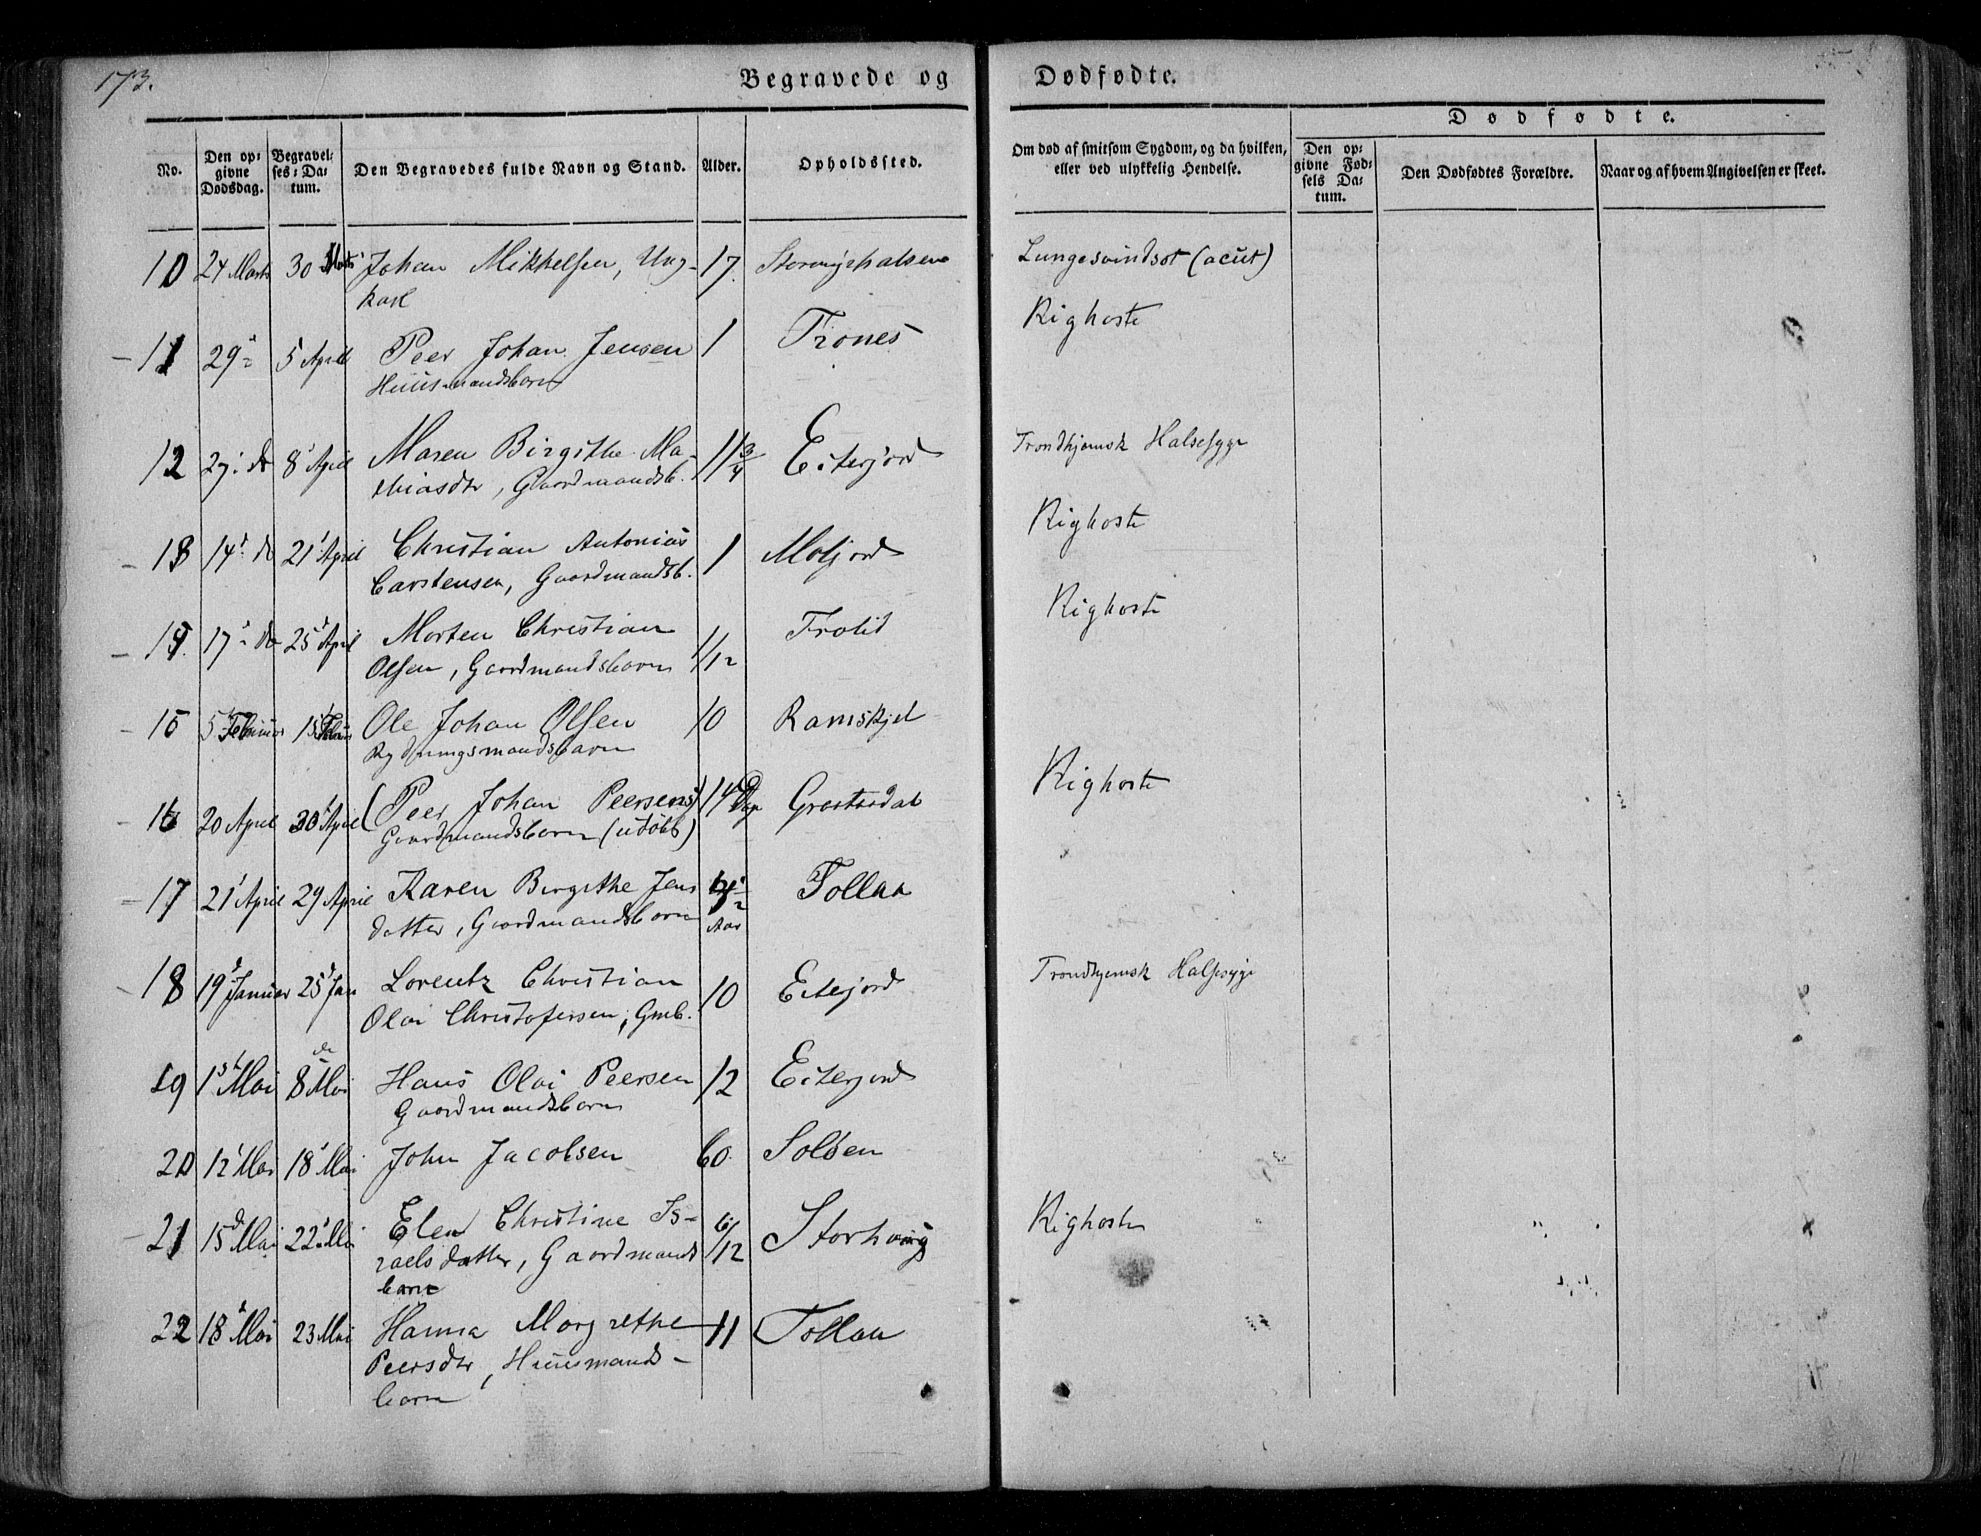 173.
Begravede og Dødfødte.
No.
Den opgivne Dødsdag.
Begravelses-Datum.
Den Begravedes fulde Navn og Stand.
Alder.
Opholdssted.
Om død af smitsom Sygdom, og da hvilken, eller ved ulykkelig Hendelse.
Dødfødte.
Den opgivne Fødsels Datum.
Den Dødfødtes Forældre.
Naar og af hvem Angivelsen er skeet.
10 24 Marts 30 Marts Johan Mikkelsen, Ung- 17. Lungesvindsot (acut)
karl
11 29 5 April Peer Johan Jensen 1 Trones Kighoste
Huusmandsbarn
12 27 do 8 April Maren Birgithe Ma- 11 3/4 Eiterjord Trondhjemsk Halsesyge
thiasdtr, Gaardmandsb.
13 14 do 21 April Christian Antonius 1 Mofjord Kighoste
Carstensen, Gaardmandsb.
14. 17 do 25 April Morten Christian 1/12 Trolid Kighoste
Olsen, Gaardmandsbarn
15 5 Februar 15 Ole Johan Olsen 10 Ramskjel
Rydningsmandsbarn
16 20 April 30 April (Peer Johan Peersen) 14 Dage Kighoste
Gaardmandsbarn (udøbt)
17 21 April 29 April Karen Birgithe Jens Tollaa
datter, Gaardmandsbarn Aar
18 19 Januar 25 Jan Lorentz Christian 10 Eiterjord Trondhjemsk Halsesyge
Olai Christofersen, Gmb.
19 1 Mai 8 Mai Hans Olai Peersen 12 Eiterjord
Gaardmandsbarn
20 12 Mai 18 Mai John Jacobsen 60. Soløen
21 15 Mai 22 Mai Elen Christine Is- 6/12 Storhaug Kighoste
raelsdatter, Gaardmands
barn
22 18 Mai 23 Mai Hanna Margrethe 11 Tollaa
Peersdtr, Huusmands-
barn